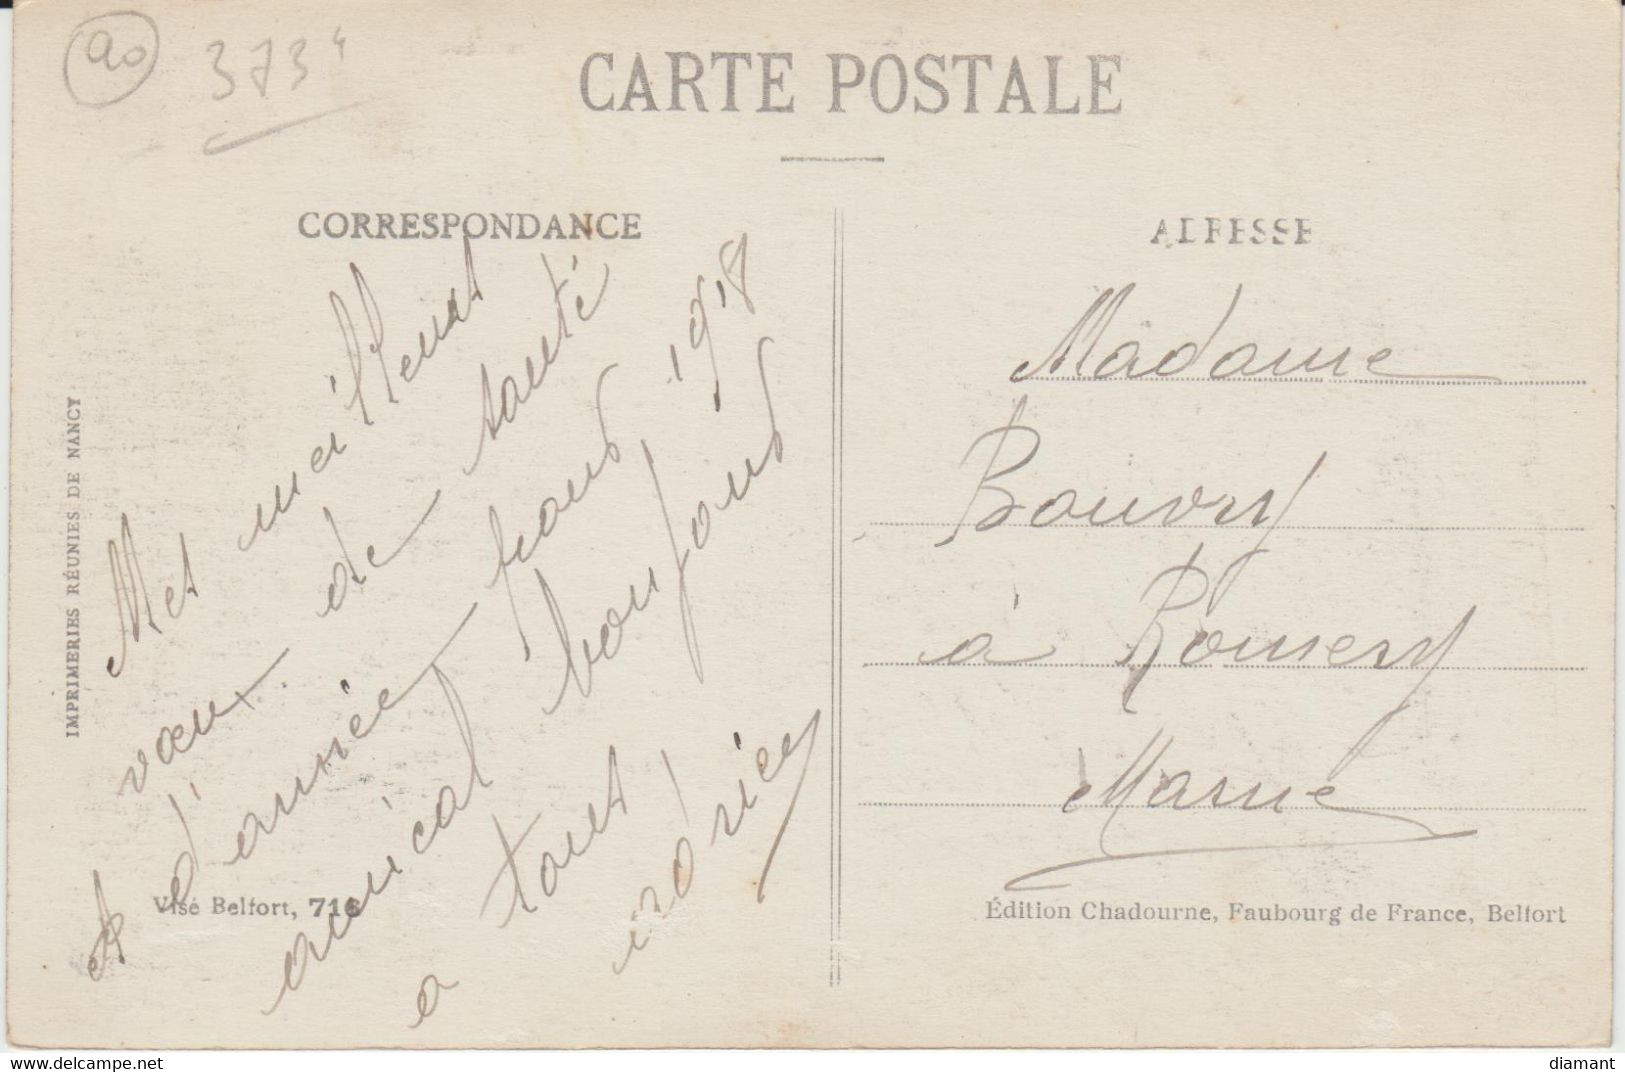 90
3734
CARTE POSTALE
CORRESPONDANCE
Mes meilleurs
vœux de santé
& d'année pour 1918
amical bonjour
a tous
ADRESSE
Madame
Bouvry
à Romery
Marne
IMPRIMERIES RÉUNIES DE NANCY
Visé Belfort, 716
Édition Chadourne, Faubourg de France, Belfort
www.delcampe.net
diamant